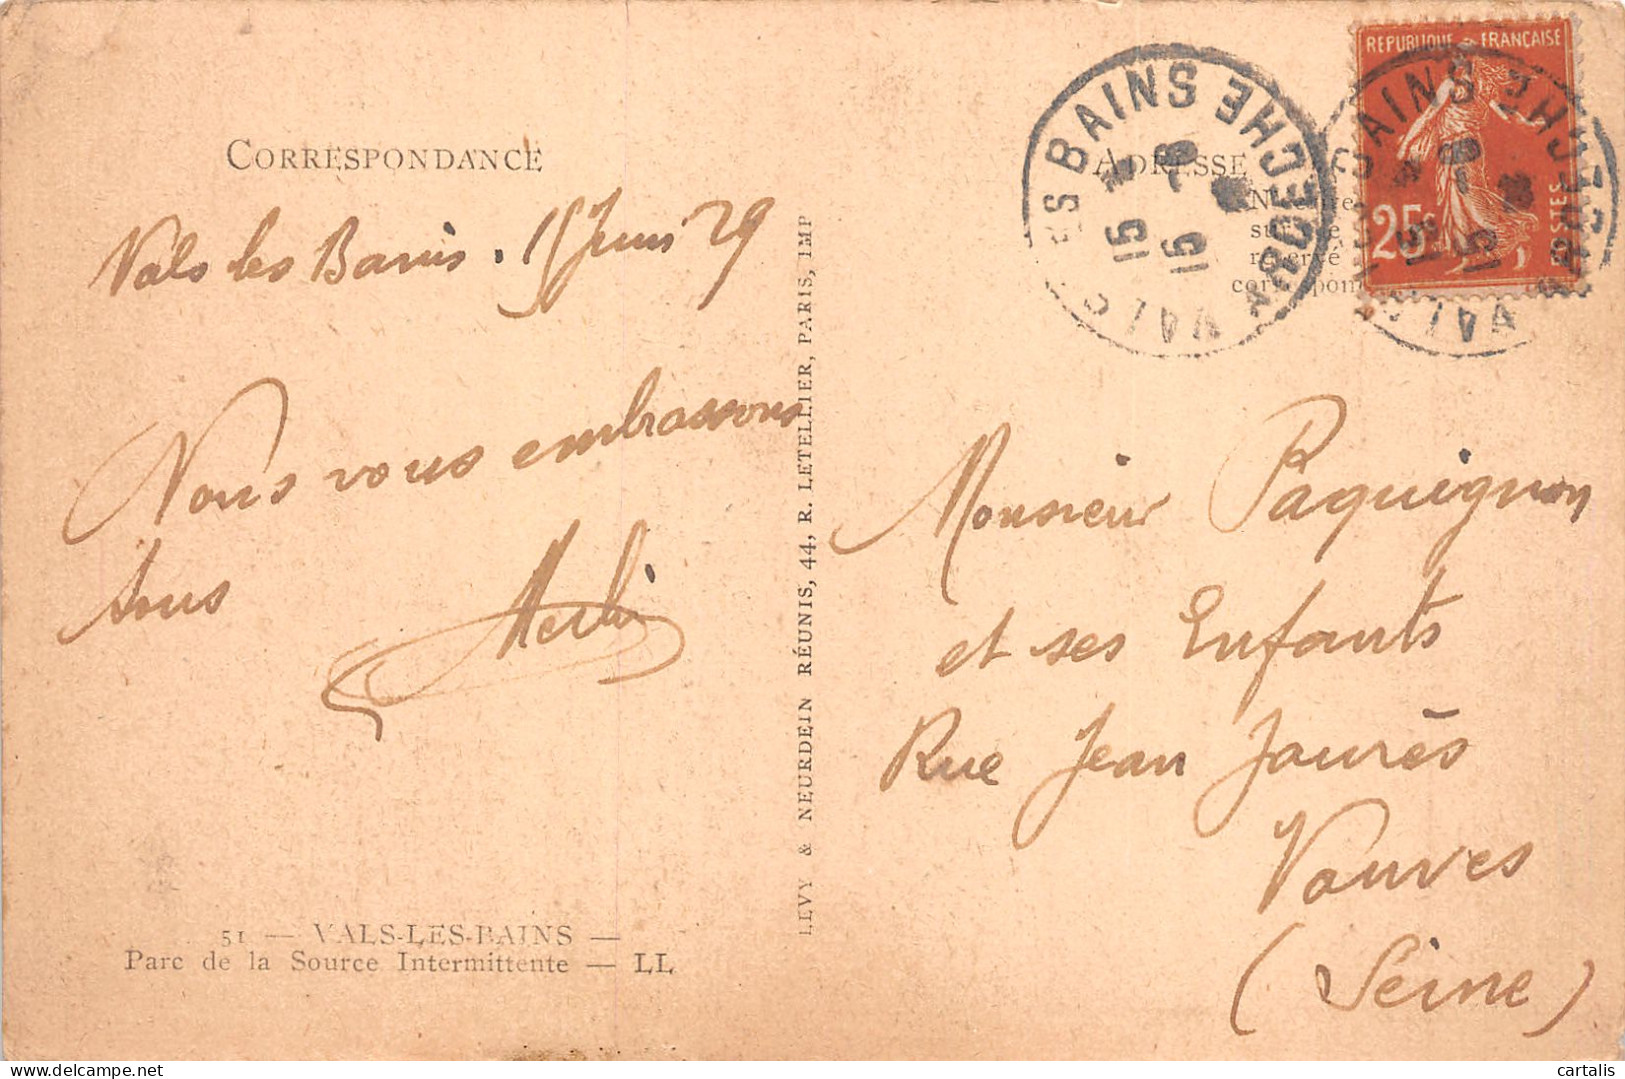 CORRESPONDANCE
Vals les Bains. 15 Juin 29
Nous vous embrassons
tous
51 — VALS-LES-BAINS —
Parc de la Source Intermittente — LL
LEVY & NEURDEIN RÉUNIS, 44, R. LETELLIER, PARIS, IMP
ADRESSE
REPUBLIQUE FRANÇAISE
25c
POSTES
VALS LES BAINS ARDECHE
15 -6
VALS LES BAINS ARDECHE
15 -6
Monsieur Paquignon
et ses Enfants
Rue Jean Jaurès
Vanves
(Seine)
cartalis